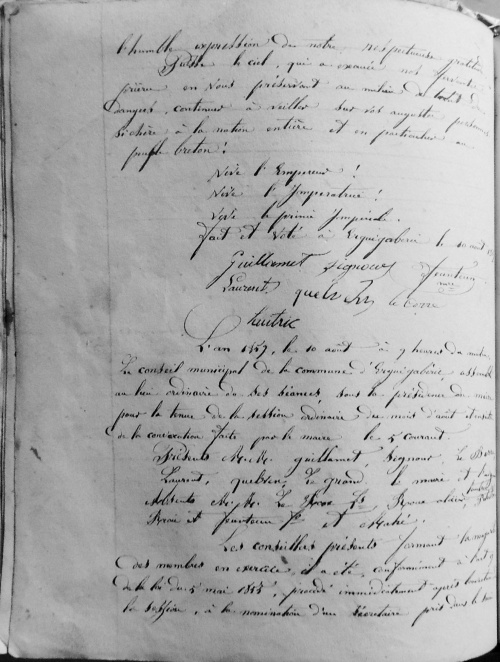 l'humble expression de notre respectueuse gratitude
Puisse le ciel, qui a exaucé nos ferventes
prières en vous préservant au milieu de tout de
dangers, continuer à veiller sur vos augustes personnes
si chère à la nation entière et en particulier au
peuple breton !
Vive l'Empereur !
Vive l'Impératrice !
Vive le prince Impérial.
Fait et voté à Ergué-Gabéric le 10 août
Guillamet Signour
Laurent
L'an 1859, le 10 août à 9 heures du matin
Le conseil municipal de la commune d'Ergué-Gabéric, assemblé
au lieu ordinaire de ses séances, sous la présidence du maire
pour la tenue de la session ordinaire des mois d'août
de la convocation faite par le maire le 5 courant.
Présents M.M. Guillamet, Signour, Le
Laurent, Le Grand, le maire et
Absents M.M. Le
et et Mahé.
Les conseillers présents formant la majorité
des membres en exercice, il a été, conformément à
de la loi du 5 mai 1855, procédé immédiatement après l'ouverture
la session, à la nomination d'un secrétaire pris dans le sein